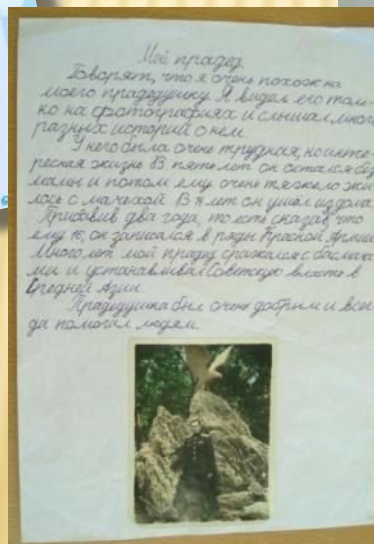 Мой прадед.
Говорят, что я очень похож на
моего прадедушку. Я видел его толь-
ко на фотографиях и слышал много
разных историй о нём.
У него была очень трудная, но инте-
ресная жизнь. В пять лет он остался без
мамы и потом ему очень тяжело жи-
лось с мачехой. В лет он ушёл из дома.
Прибавив два года, то есть сказав, что
ему он записался в ряды Красной Армии.
Много лет мой прадед сражался с басмача-
ми и устанавливал Советскую власть в
Средней Азии.
Прадедушка был очень добрым и все-
да помогал людям.